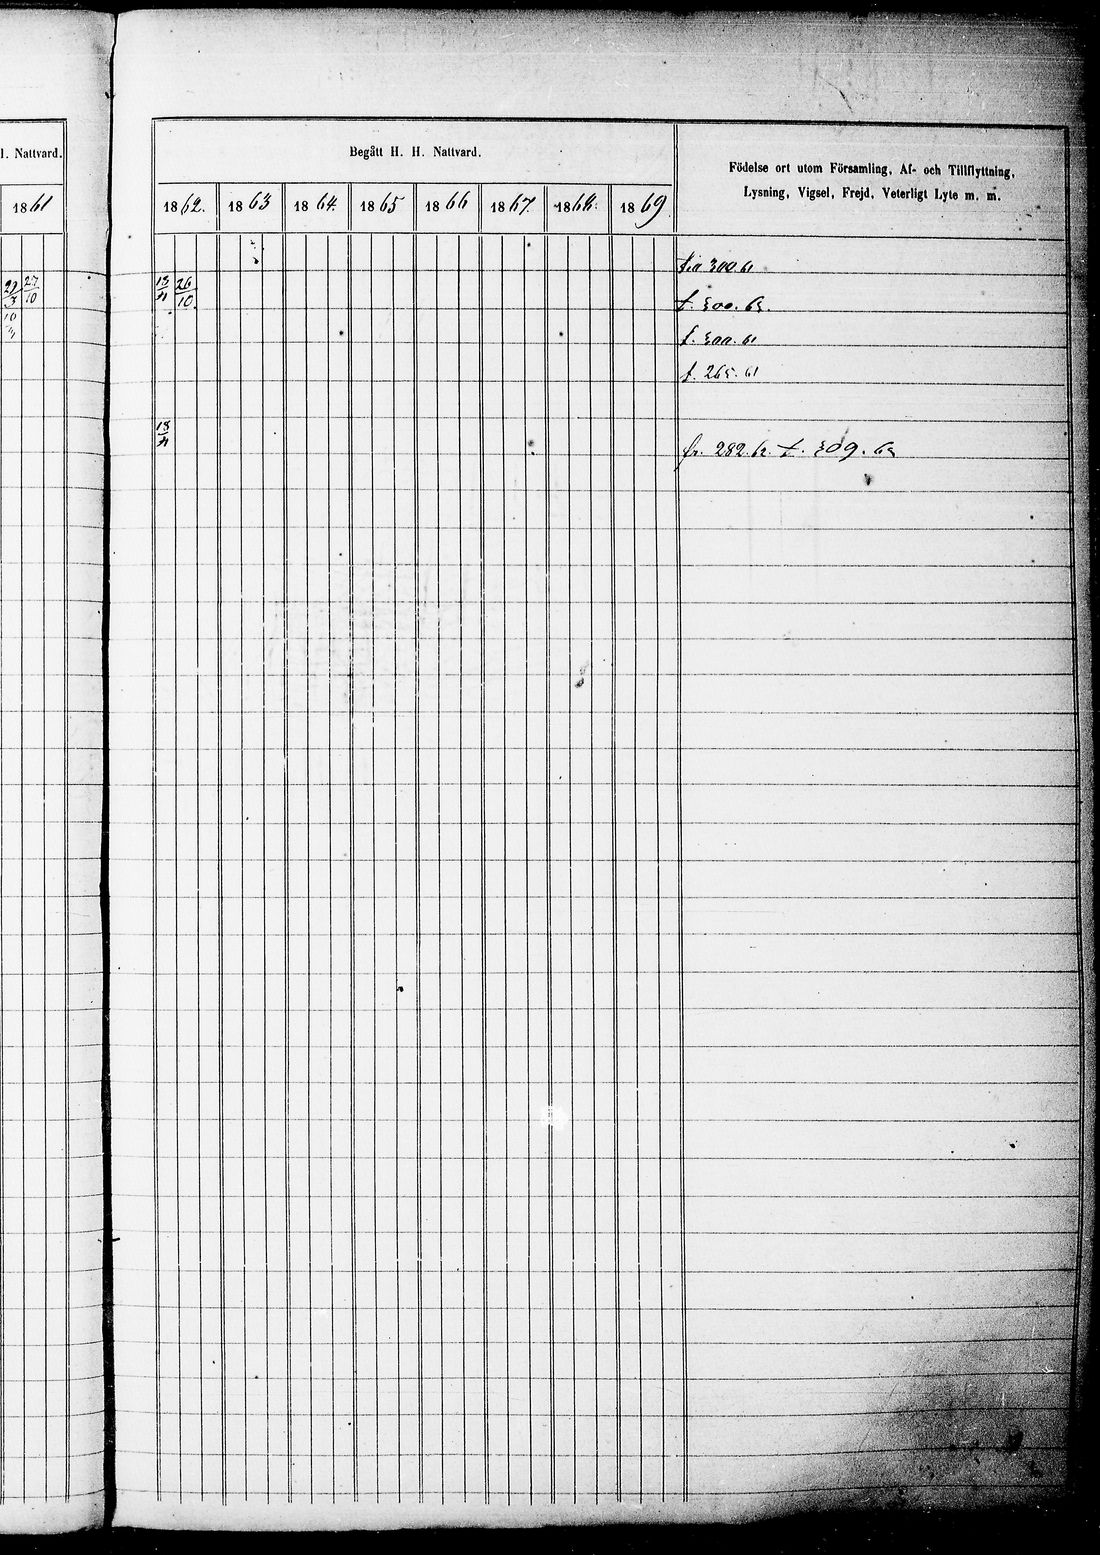 l. Nattvard.
Begått H. H. Nattvard.
Födelse ort utom Församling, Af- och Tillflyttning,
Lysning, Vigsel, Frejd, Veterligt Lyte m. m.
1861
1862. 1863 1864. 1865 1866 1867. 1868. 1869
300 61
27/10 13/4 26/10
t. 300. 63.
10
f. 300. 61
f. 265. 61
13/4
fr. 282. 62. t. 309. 63